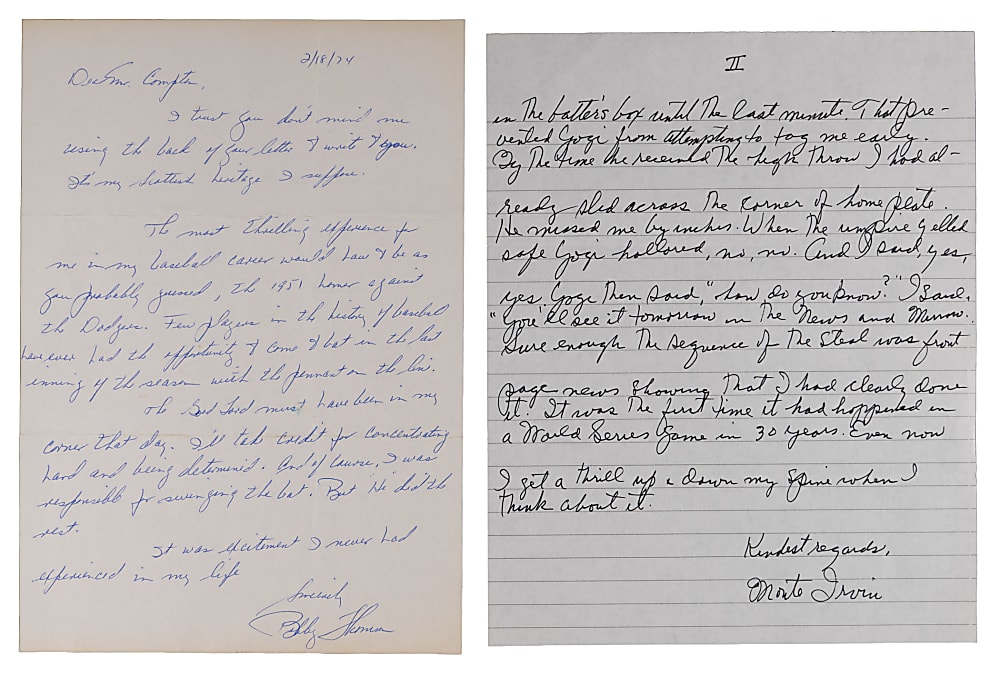 2/18/74
Dear Mr. Compton,
I trust you don't mind me
using the back of your letter to write to you.
It's my Scottish heritage I suppose.
The most thrilling experience for
me in my baseball career would have to be as
you probably guessed, the 1951 homer against
the Dodgers. Few players in the history of baseball
have ever had the opportunity to come to bat in the last
inning of the season with the pennant on the line.
The Good Lord must have been in my
corner that day. I'll take credit for concentrating
hard and being determined. And of course, I was
responsible for swinging the bat. But He did the
rest.
It was excitement I never had
experienced in my life
Sincerely
Bobby Thomson
II
in The batter's box until The last minute. That pre-
vented Yogi from attempting to tag me early.
By The time he received The high Throw I had al-
ready slid across The corner of home plate.
He missed me by inches. When The umpire yelled
safe Yogi hollored, no, no. And I said, yes,
yes, Yogi Then said, "how do you know?" I said,
"You'll see it tomorrow in The News and Mirrow.
Sure enough The sequence of The Steal was front
page news showing That I had clearly done
it. It was The first time it had happened in
a World Series Game in 30 years. Even now
I get a thrill up & down my spine when I
Think about it.
Kindest regards,
Monte Irvin